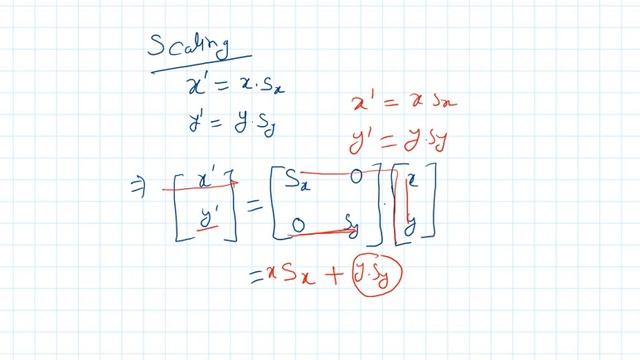 Scaling
x' = x.Sx
y' = y.Sy
x' = x Sx
y' = y.Sy
⇒ [x' y'] = [Sx 0 0 Sy] . [x y]
= xSx + y.Sy